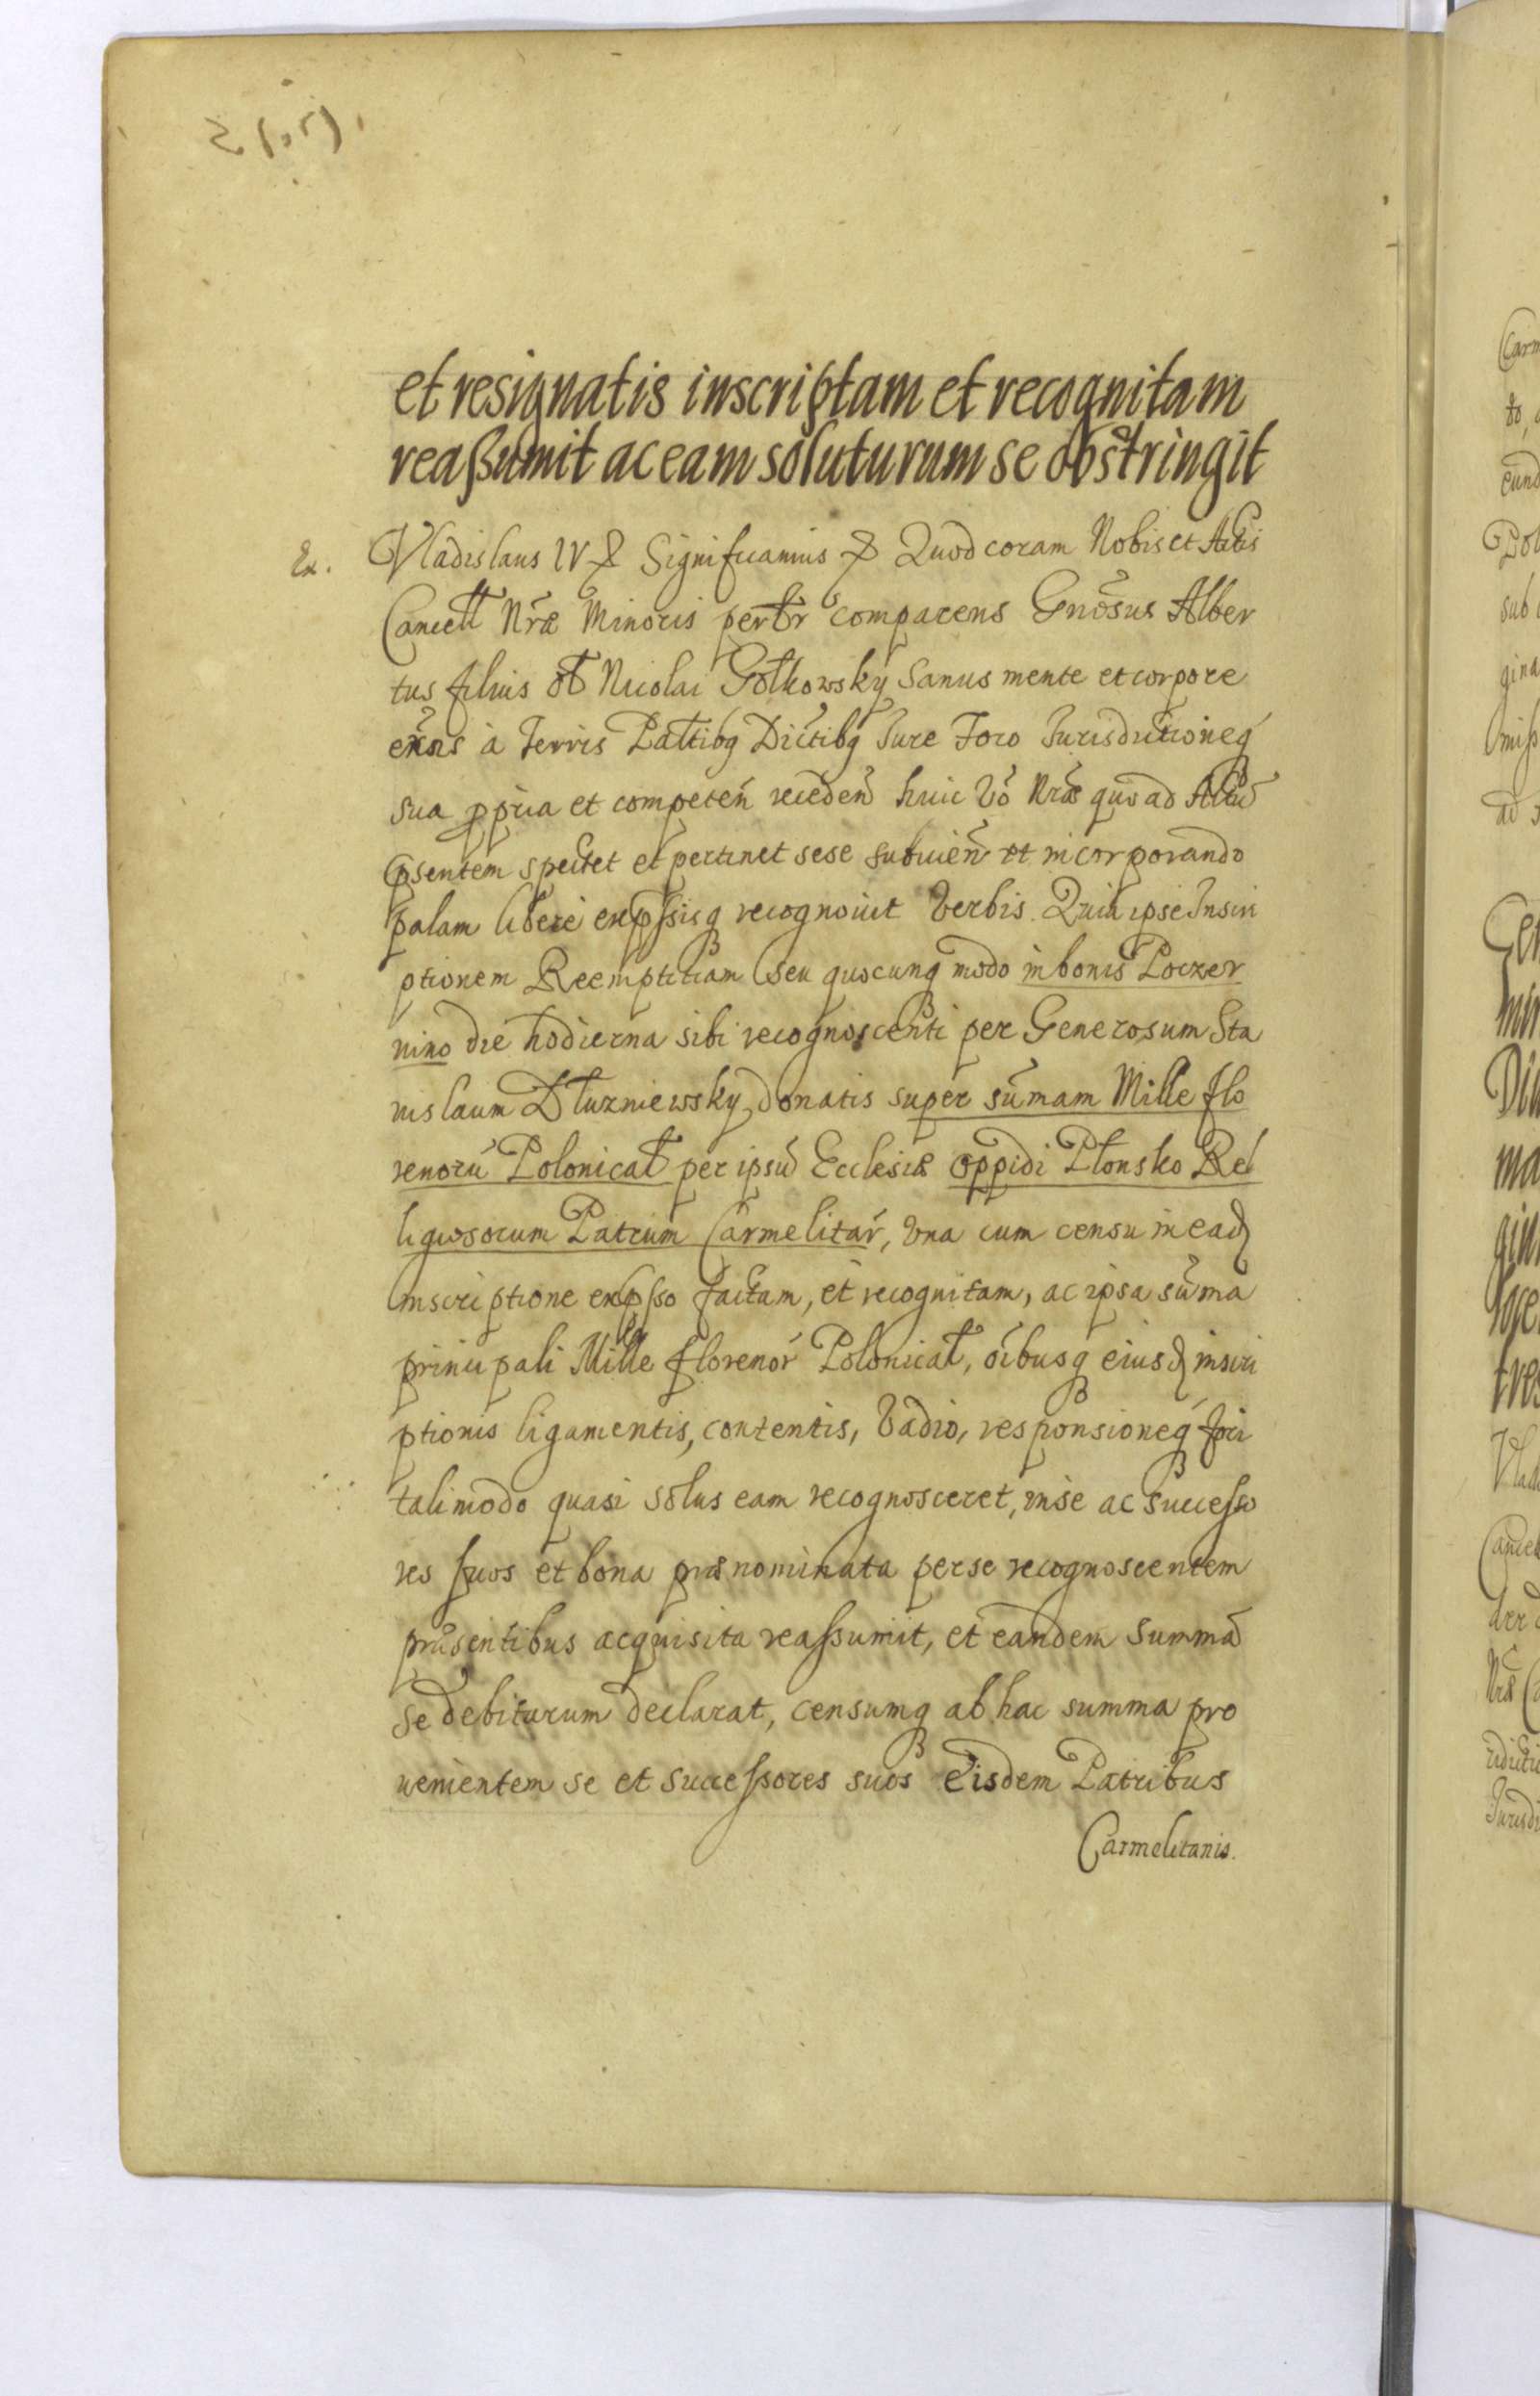 et resignatis inscriptam et recognitam
reaßumit ac eam soluturum se obstringit
Ex. Vladislaus IV Significamus Quod coram Nobis et Actis
Cancell Nrae Minoris personlr comparens Gnosus Alber
tus filius ol Nicolai Gołkowsky Sanus mente et corpore
exns à Terris Pałtibq Dictibq Jure Foro Jurisdictioneq
sua ppria et competen receden huic vo Nrae quo ad Actu
psentem spectet et pertinet sese subiicien et incorporando
palam libere expssisq recognovit Verbis. Quia ipse Inscri
ptionem Reemptitiam seu quocunq modo in bonis Poczer
nino die hodierna sibi recognoscenti per Generosum Sta
nislaum Dłuzniewsky donatis super sumam Mille flo
renoru Polonical per ipsu Ecclesiae oppidi Płonsko Rel
ligiosorum Patrum Carmelitar, vna cum censu in ead
inscriptione expsso factam, et recognitam, ac ipsa suma
principali Mille florenor Polonical, oibusq eiusd inscri
ptionis ligamentis, contentis, Vadio, responsioneq fori
tali modo quasi solus eam recognosceret, in se ac Successo
res suos et bona praenominata per se recognoscentem
praesentibus acquisita reassumit, et eandem Summa
se debiturum declarat, censumq ab hac summa pro
venientem se et successores suos Eisdem Patribus
Carmelitanis.